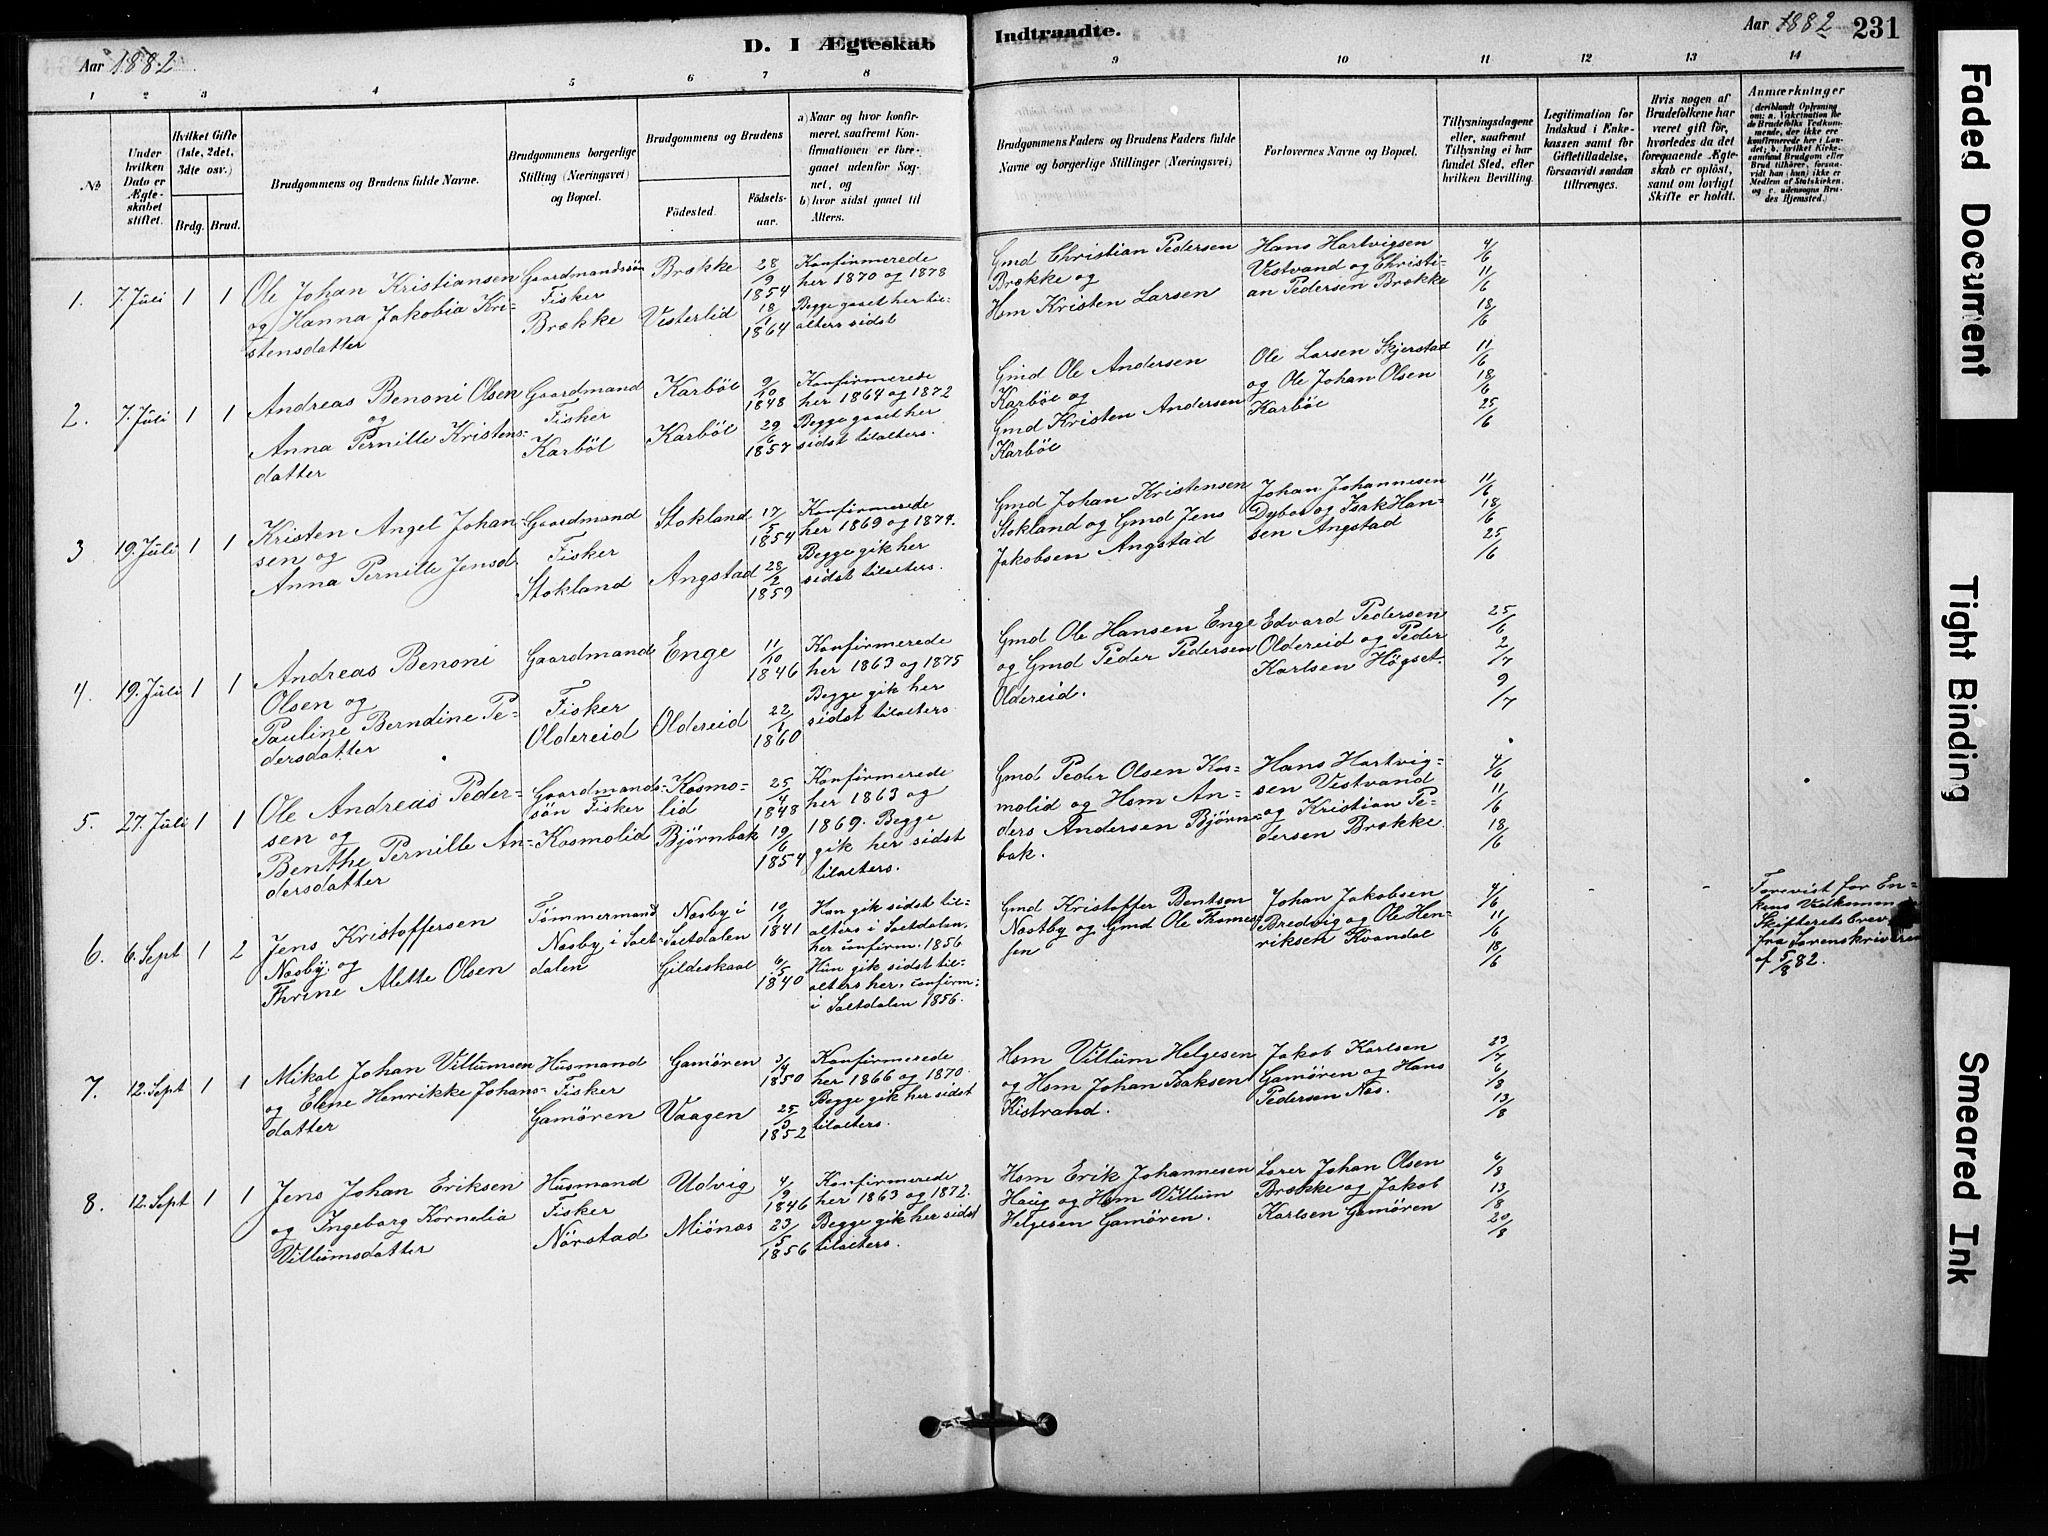 Aar 1882
D. I Ægteskab
Indtraadte.
Aar 1882
231
1 2 3 4 5 6 7 8 9 10 11 12 13 14
No
Under hvilken Dato er Ægteskabet stiftet.
Hvilket Gifte (1ste, 2det, 3die osv.)
Brdg. Brud.
Brudgommens og Brudens fulde Navne.
Brudgommens borgerlige Stilling (Næringsvei) og Bopæl.
Brudgommens og Brudens
Födested.
Födselsaar.
a) Naar og hvor konfirmeret, saafremt Konfirmationen er foregaaet udenfor Sognet, og
b) hvor sidst gaaet til Alters.
Brudgommens Faders og Brudens Faders fulde Navne og borgerlige Stillinger (Næringsvei)
Forlovernes Navne og Bopæl.
Tillysningsdagene eller, saafremt Tillysning ei har fundet Sted, efter hvilken Bevilling.
Legitimation for Indskud i Enkekassen samt for Gifteltilladelse, forsaavidt saadan tiltrænges.
Hvis nogen af Brudefolkene har været gift för, hvorledes da det foregaaende Ægteskab er oplöst, samt om lovligt Skifte er holdt.
Anmærkninger
1. 7. Juli 1 1
Ole Johan Kristiansen
og Hanna Jakobia Kri-
stensdatter
Gaardmandssön
Fisker
Brække
Brække
Vesterlid
28/9 1854
18/1 1864
Konfirmerede
her 1870 og 1878
Begge gaaet her til-
alters sidst
Gmd Christian Pedersen
Brække og
Hsm Kristen Larsen
Hans Hartvigsen
Vestvand og Christi-
an Pedersen Brække
4/6
11/6
18/6
2. 7. Juli 1 1
Andreas Benoni Olsen
og
Anna Pernille Kristens-
datter
Gaardmand
Fisker
Karböl
Karböl
Karböl
9/10 1848
29/6 1857
Konfirmerede
her 1864 og 1872
Begge gaaet her
sidst tilalters.
Gmd Ole Andersen
Karböl og
Gmd Kristen Andersen
Karböl
Ole Larsen Skjerstad
og Ole Johan Olsen
Karböl
11/6
18/6
25/6
3 19. Juli 1 1
Kristen Angel Johan-
sen og
Anna Pernille Jensd.
Gaardmand
Fisker
Stokland
Stokland
Angstad
17/5 1854
28/2 1859
Konfirmerede
her 1869 og 1874.
Begge gik her
sidst tilalters.
Gmd Johan Kristensen
Stokland og Gmd Jens
Jakobsen Angstad
Johan Johannesen
Dybor og Isak Han-
sen Angstad
11/6
18/6
25/6
4. 19. Juli 1 1
Andreas Benoni
Olsen og
Pauline Berndine Pe-
dersdatter
Gaardmand
Fisker
Oldereid
Enge
Oldereid
11/10 1846
22/1 1860
Konfirmerede
her 1863 og 1875
Begge gik her
sidst tilalters.
Gmd Ole Hansen Enge
og Gmd Peder Pedersen
Oldereid.
Edvard Pedersen
Oldereid og Peder
Karlsen Högset.
25/6
2/7
9/7
5. 27. Juli 1 1
Ole Andreas Peder-
sen og
Benthe Pernille An-
dersdatter
Gaardmands-
sön Fisker
Kosmolid
Kosmo-
lid
Björnbak
25/4 1848
19/6 1854
Konfirmerede
her 1863 og
1869. Begge
gik her sidst
tilalters.
Gmd Peder Olsen Kos-
molid og Hsm An-
ders Andersen Björn-
bak.
Hans Hartvig-
sen Vestvand
og Kristian Pe-
dersen Brække
4/6
11/6
18/6
6. 6. Sept 1 2
Jens Kristoffersen
Næsby og
Thrine Alette Olsen
Tömmermand
Næsby i Salt-
dalen
Næsby i
Saltdalen
Gildeskaal
19/1 1841
6/5 1840
Han gik sidst til-
alters i Saltdalen,
her confirm. 1856
Hun gik sidst til-
alters her, confirm:
i Saltdalen 1856.
Gmd Kristoffer Bentsen
Næstby og Gmd Ole Thomes-
sen
Johan Jakobsen
Bredvig og Ole Hen-
riksen Kvandal
4/6
11/6
18/6
Forevist for En-
kens Vedkommen
Skifteretsbrev
fra Sorenskriveren
af 5/8 82.
7. 12. Sept 1 1
Mikal Johan Villumsen
og Elene Henrikke Johans-
datter
Husmand
Fisker
Gamören
Gamören
Vaagen
3/4 1850
25/3 1852
Konfirmerede
her 1866 og 1870.
Begge gik her sidst
tilalters.
Hsm Villum Helgesen
og Hsm Johan Isaksen
Kistrand.
Jakob Karlsen
Gamören og Hans
Pedersen Næs.
23/7
6/8
13/8
8. 12. Sept 1 1
Jens Johan Eriksen
og Ingeborg Kornelia
Villumsdatter
Husmand
Fisker
Nörstad
Udvig
Miönæs
4/9 1846
23/5 1856
Konfirmerede
her 1863 og 1872.
Begge gik her sidst
tilalters.
Hsm Erik Johannesen
Haug og Hsm Villum
Helgesen Gamören.
Lærer Johan Olsen
Brække og Jakob
Karlsen Gamören
6/8
13/8
20/8
Faded Document
Tight Binding
Smeared Ink